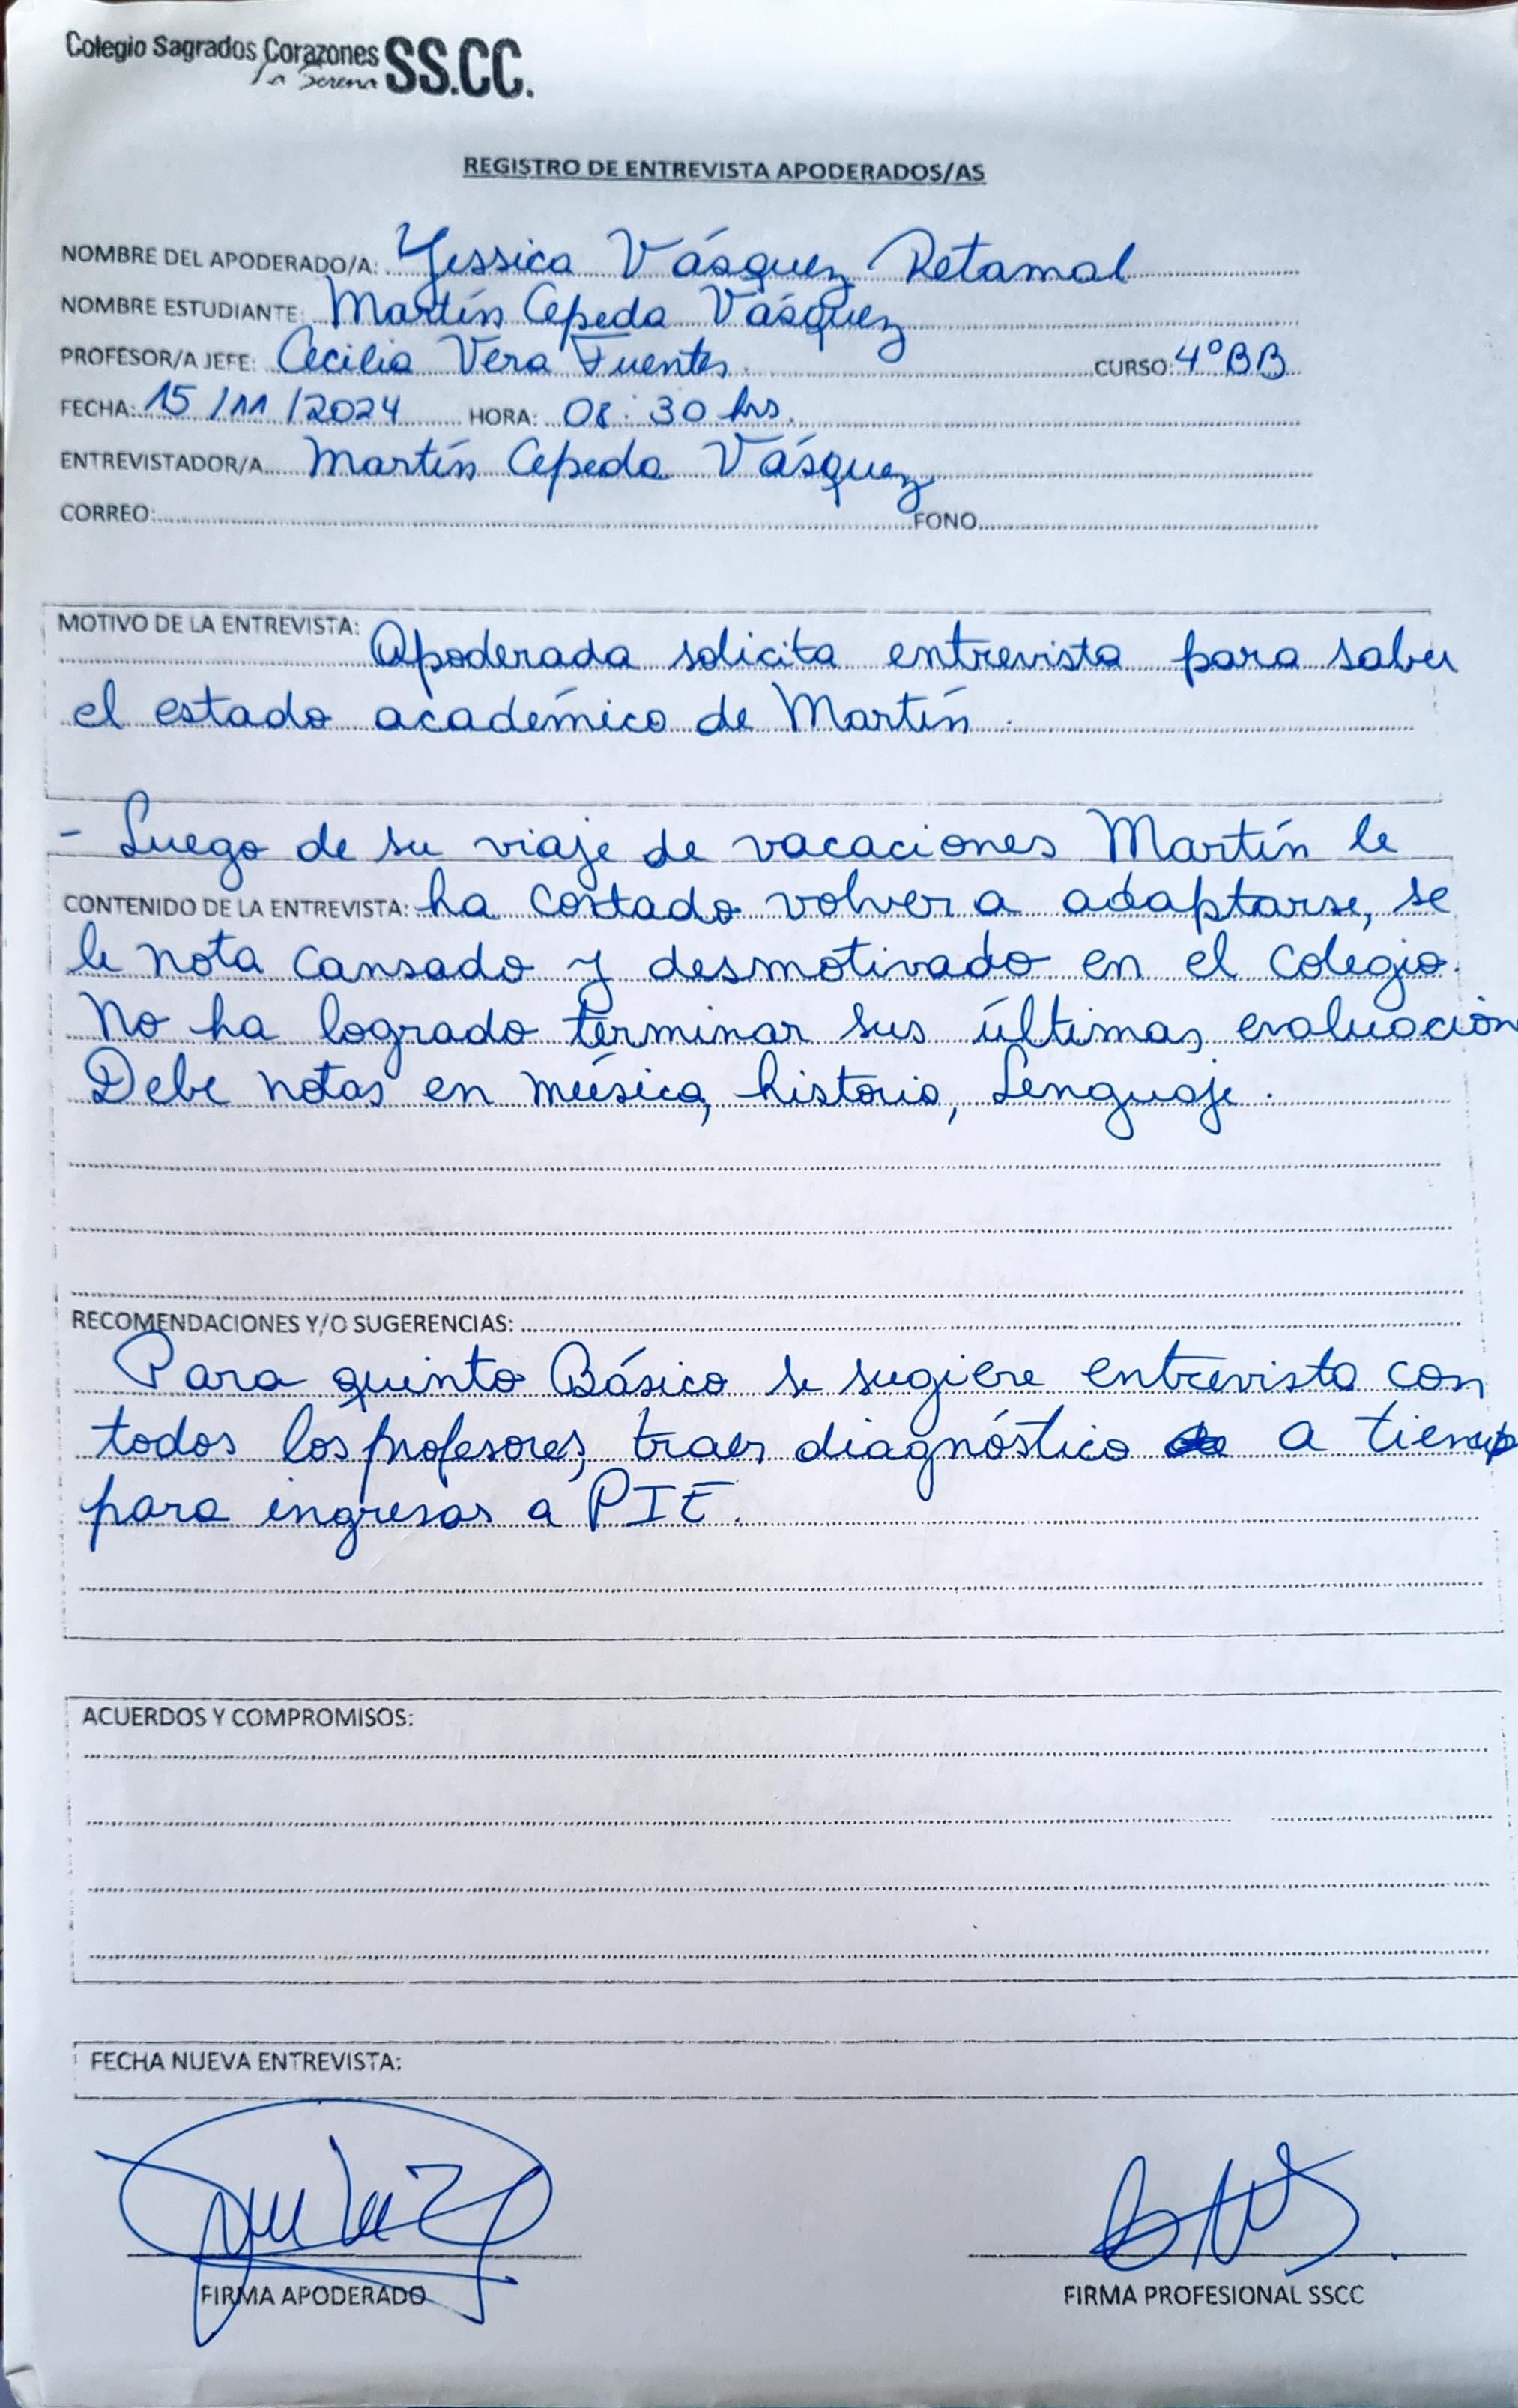 Colegio Sagrados Corazones SS.CC.
La Serena
REGISTRO DE ENTREVISTA APODERADOS/AS
NOMBRE DEL APODERADO/A: Yessica Vásquez Retamal
NOMBRE ESTUDIANTE: Martín Cepeda Vásquez
PROFESOR/A JEFE: Cecilia Vera Fuentes CURSO: 4°BB
FECHA: 15/11/2024 HORA: 08:30 hrs.
ENTREVISTADOR/A Martín Cepeda Vásquez
CORREO: FONO
MOTIVO DE LA ENTREVISTA:
Apoderada solicita entrevista para saber
el estado académico de Martín.
- Luego de su viaje de vacaciones Martín le
CONTENIDO DE LA ENTREVISTA: ha costado volver a adaptarse, se
le nota cansado y desmotivado en el colegio.
No ha logrado terminar sus últimas evaluacion
Debe notas en música, historia, Lenguaje.
RECOMENDACIONES Y/O SUGERENCIAS:
Para quinto Básico se sugiere entrevista con
todos los profesores, traer diagnóstico a tiemp
para ingresar a PIE.
ACUERDOS Y COMPROMISOS:
FECHA NUEVA ENTREVISTA:
FIRMA APODERADO FIRMA PROFESIONAL SSCC